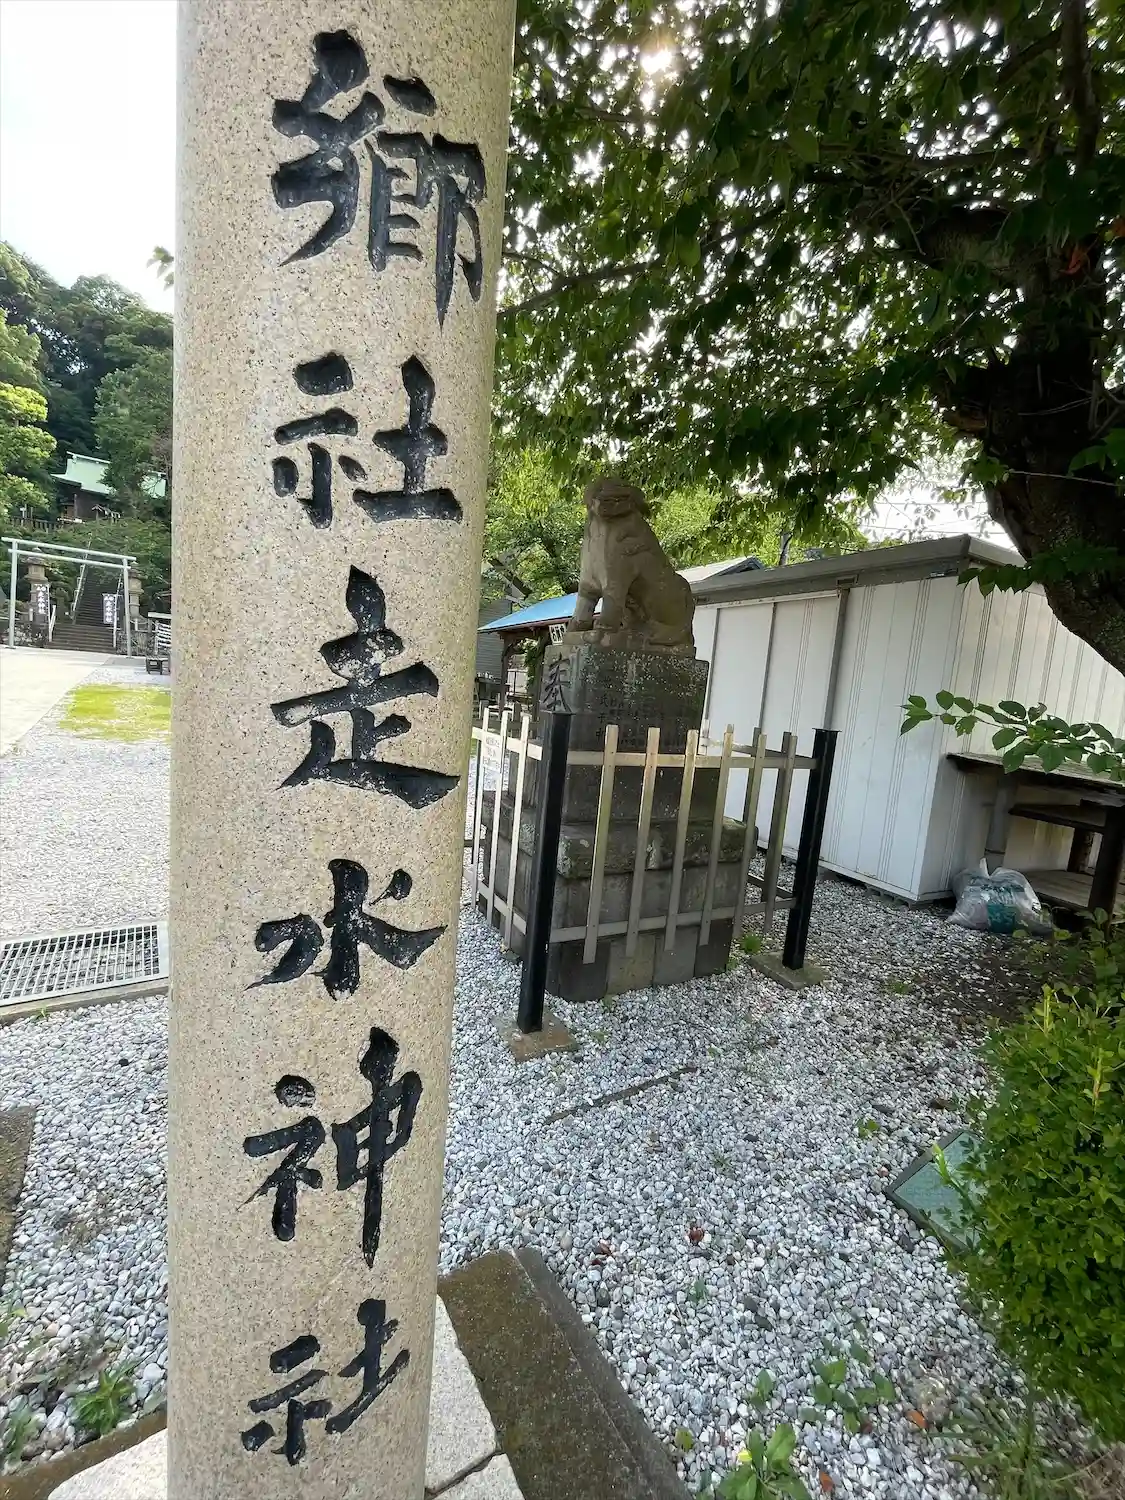 郷社走水神社
奉